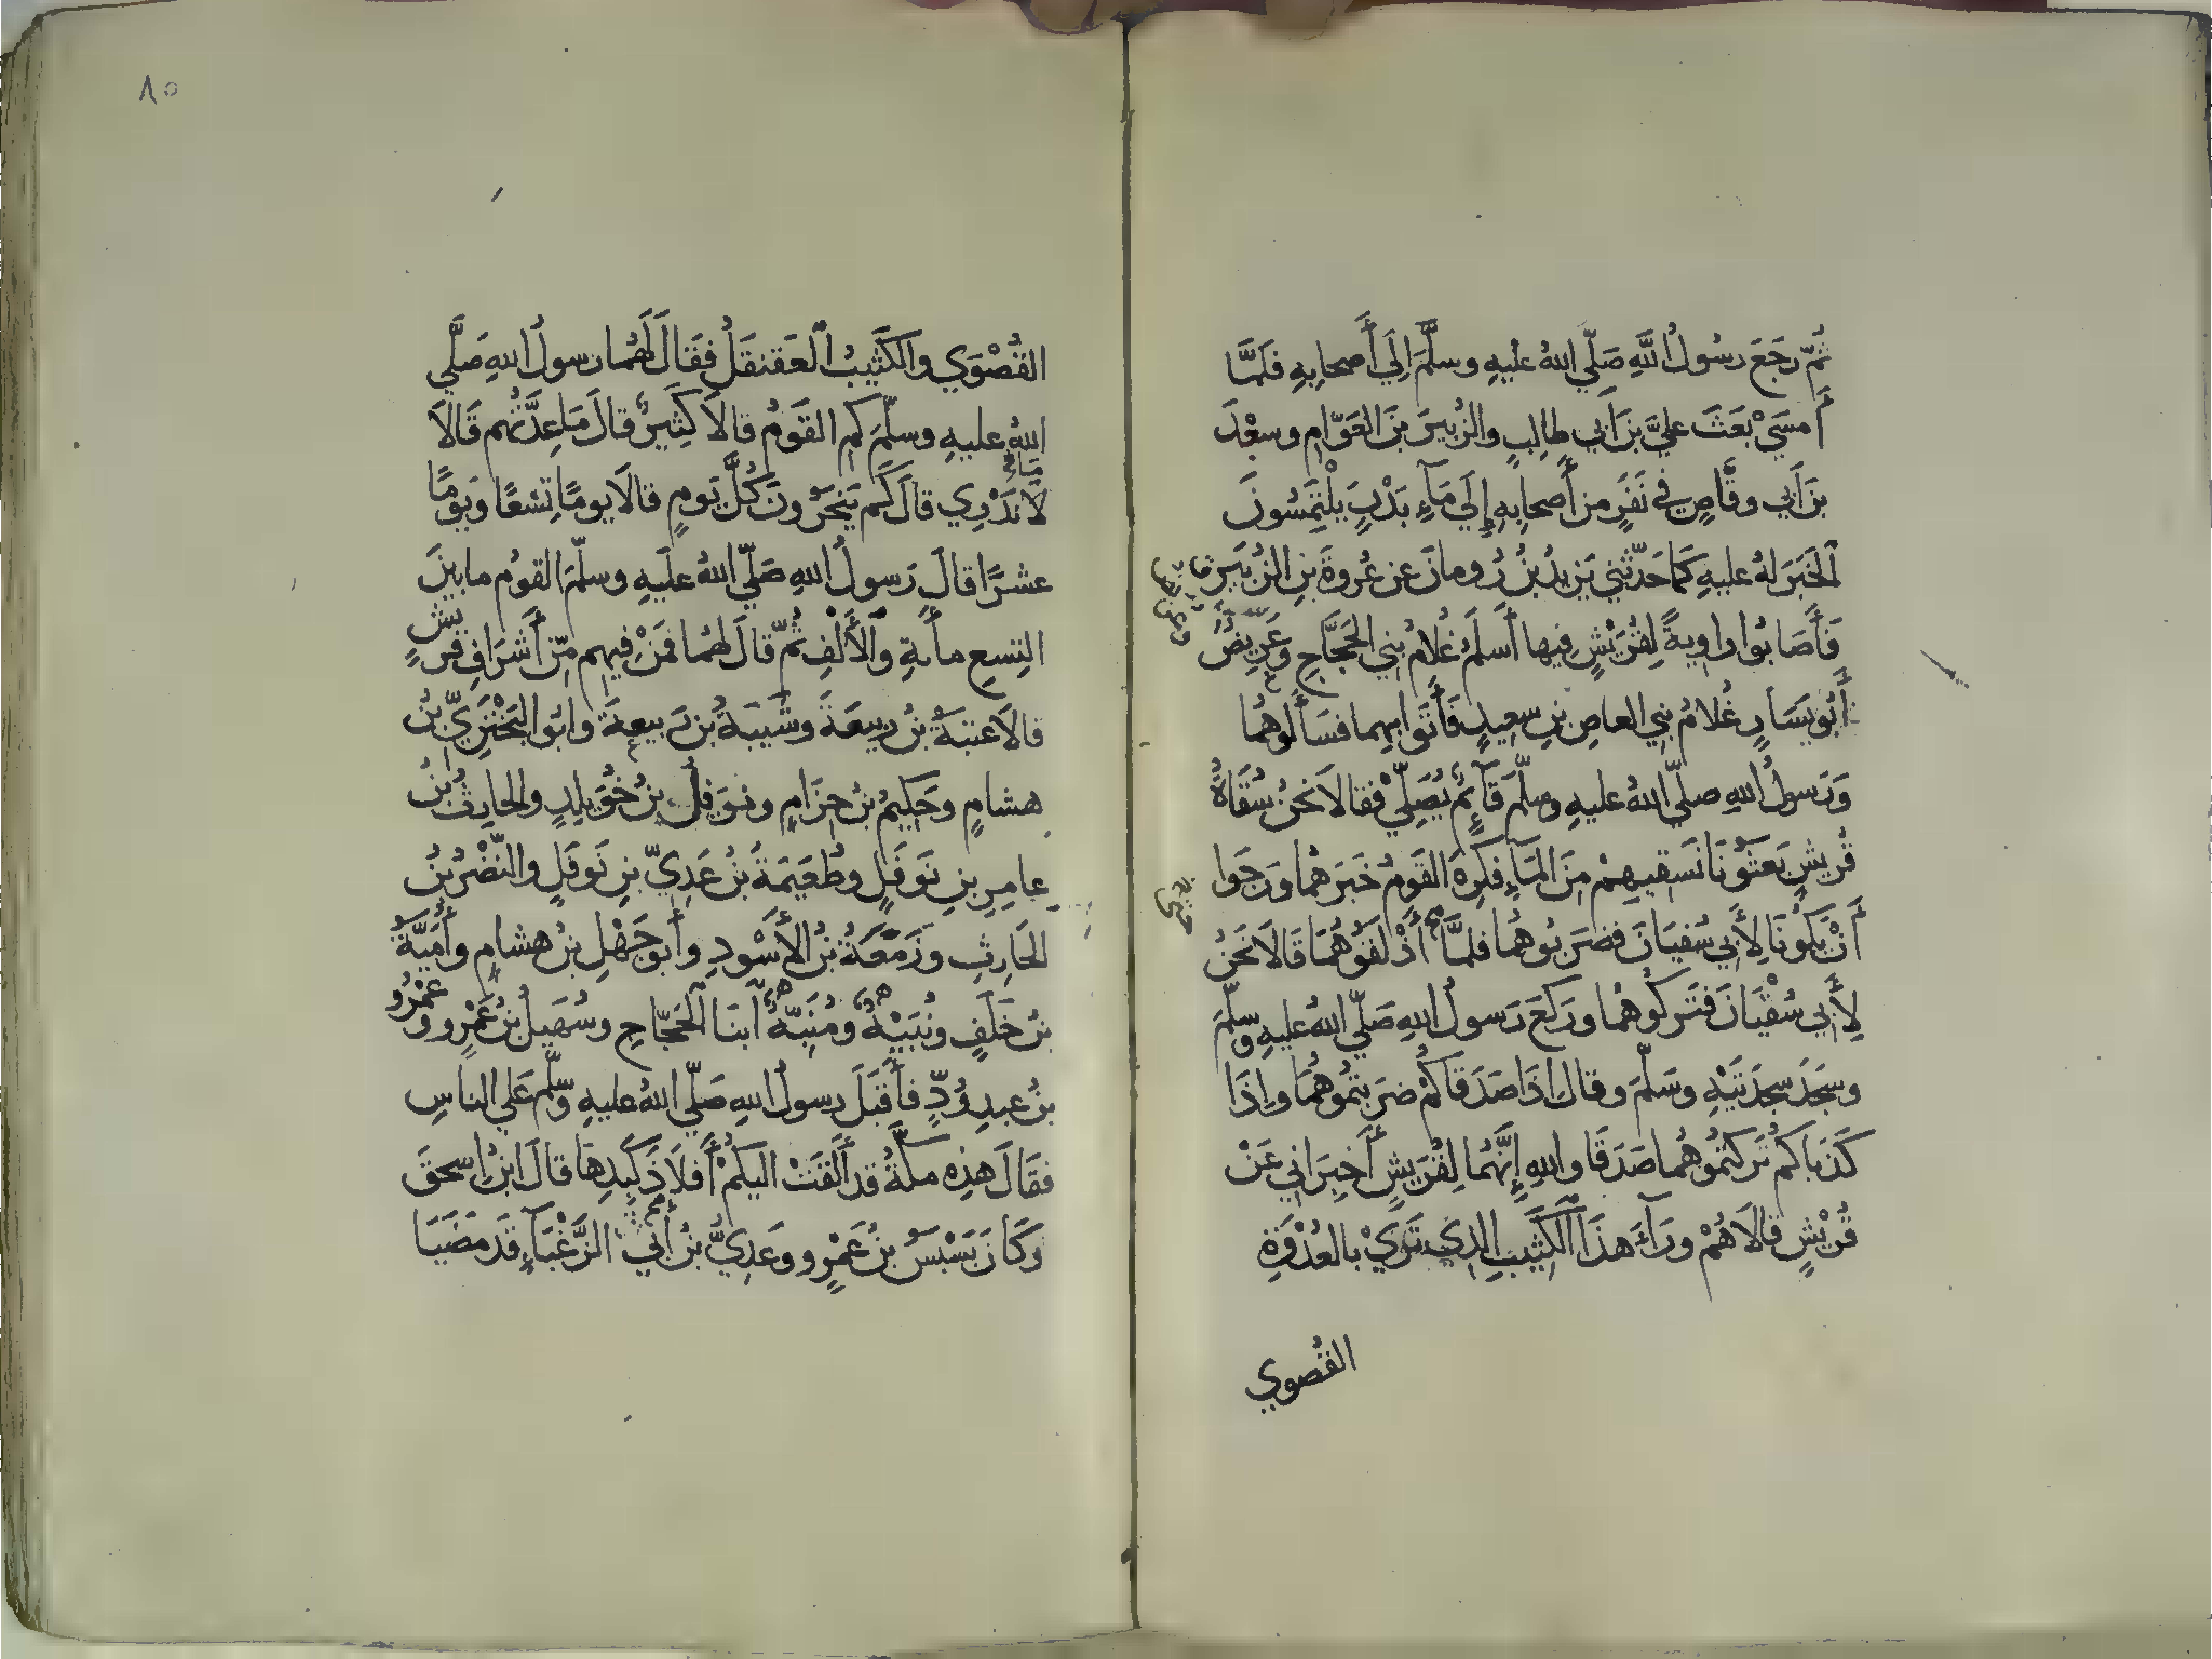 ثُمّ رَجَعَ رسُولُ اللَّهِ صَلّي اللهُ عليهِ وسلَّمَ إِلَي أَصحابِهِ فلَمَّا
أَمسَيْ بَعَثَ عليَّ بنَ أَبي طالِبٍ والزُبيرَ بنَ العَوّامِ وسعْدَ
بنَ أَبي وقَّاصٍ في نَفَرٍ من أَصحابِهِ إِلَي مَآءِ بَدْرٍ يلْتَمِسُونَ
الخَبَرَ لهُ عليهِ كَمَا حَدّثني يَزِيدُ بنُ رُومانَ عن عُروةَ بنِ الزُبَيرِ
فَأَصَابُوا راويةً لِقُرَيْشٍ فيها أَسلَمُ غُلامُ بَنِي الحَجَّاجِ وعَرِيضٌ
أَبُو يَسَارٍ غُلامُ بني العاصِ بنِ سعِيدٍ فَأَتَوا بهما فسَأَلُوهُما
وَرَسولُ اللهِ صلّي اللهُ عليهِ وسلّمَ قَآئِمٌ يُصَلِّيْ فقالاَ نَحنُ سُقَاةُ
قُريشٍ بَعَثُونَا نَسقِيهِمْ مِنَ المَآءِ فكَرِهَ القَومُ خَبَرَهُمْا وَرَجَوا
أَنْ يَكُونَا لأَبي سُفيَانَ فضَربُوهُما فلمَّا أَذْلَقُوهُمَا قَالاَ نَحنُ
لأَبي سُفْيَانَ فَتَركُوهُمْا ورَكعَ رَسولُ اللهِ صَلّي اللهُ عليهِ وسلّمَ
وسَجَدَ سجدَتَيْهِ وسَلّمَ وقالَ إِذَا صَدَقَاكُمْ ضرَبتمُوهُمَا وإِذَا
كَذَبَاكم تَركتُمُوهُما صَدَقَا واللهِ إِنَّهُمَا لِقُرَيشٍ أَخبِرَاني عَنْ
قُريْشٍ قالاَ هُمْ ورَآءَ هذَا الكَثِيبِ الذِي تَرَيْ بالعُدْوَةِ
القُصوي
٨٥
القُصْوَي والكَثِيبُ العَقنقَلُ فقَالَ لَهُما رسولُ اللهِ صَلَّي
اللهُ عليهِ وسلّمَ كم القَومُ قالاَ كثِيرٌ قالَ مَا عِدَّتُهم قَالاَ
لاَ نَدْرِي قالَ كَم يَنحَرُونَ كُلَّ يَومٍ قالاَ يومًا تِسْعًا وَيومًا
عشرًا قالَ رَسولُ اللهِ صَلّي اللهُ علَيهِ وسلّمَ القومُ ما بينَ
التِسعِ مأَيةٍ والأَلْفِ ثُمّ قالَ لهُما فَمَنْ فِيهم مِّن أَشرَافِ قريشٍ
قالاَ عتبَةُ بنُ ربيعَةَ وشَيبَةُ بنُ رَبيعةَ وابُو البَخْتَرِيّ بنُ
هشامٍ وحَكِيمُ بنُ حِزَامٍ ونَوفلُ بنُ خُوَيلِدٍ والحارِثُ بنُ
عامِرِ بنِ نَوفَلٍ وطُعَيمَةُ بنُ عَدِيّ بنِ نَوفَلٍ والنّضْرُ بنُ
الحَارِثِ وزَمْعَةُ بنُ الأَسْودِ وأَبوجَهْلِ بنُ هشامٍ وأُمَيَّةُ
بنُ خَلَفٍ ونُبَيْهٌ ومُنَبّهٌ ابنَا الحَجّاجِ وسُهَيلُ بنُ عَمْرٍو وعَمْرُو
بنُ عبدِ وُدٍّ فأَقبَلَ رسولُ اللهِ صَلّي اللهُ عليهِ وسلّم عَلي الناسِ
فقَالَ هذِهِ مكّةُ قد أَلقَتْ اليكُمْ أَفلاَذَ كَبِدِهَا قالَ ابنُ اسحقَ
وكَانَ بَسْبَسُ بنُ عَمْرٍو وعَدِيُّ بنُ أَبي الزَّغْبَآءِ قَد مَضَيَا